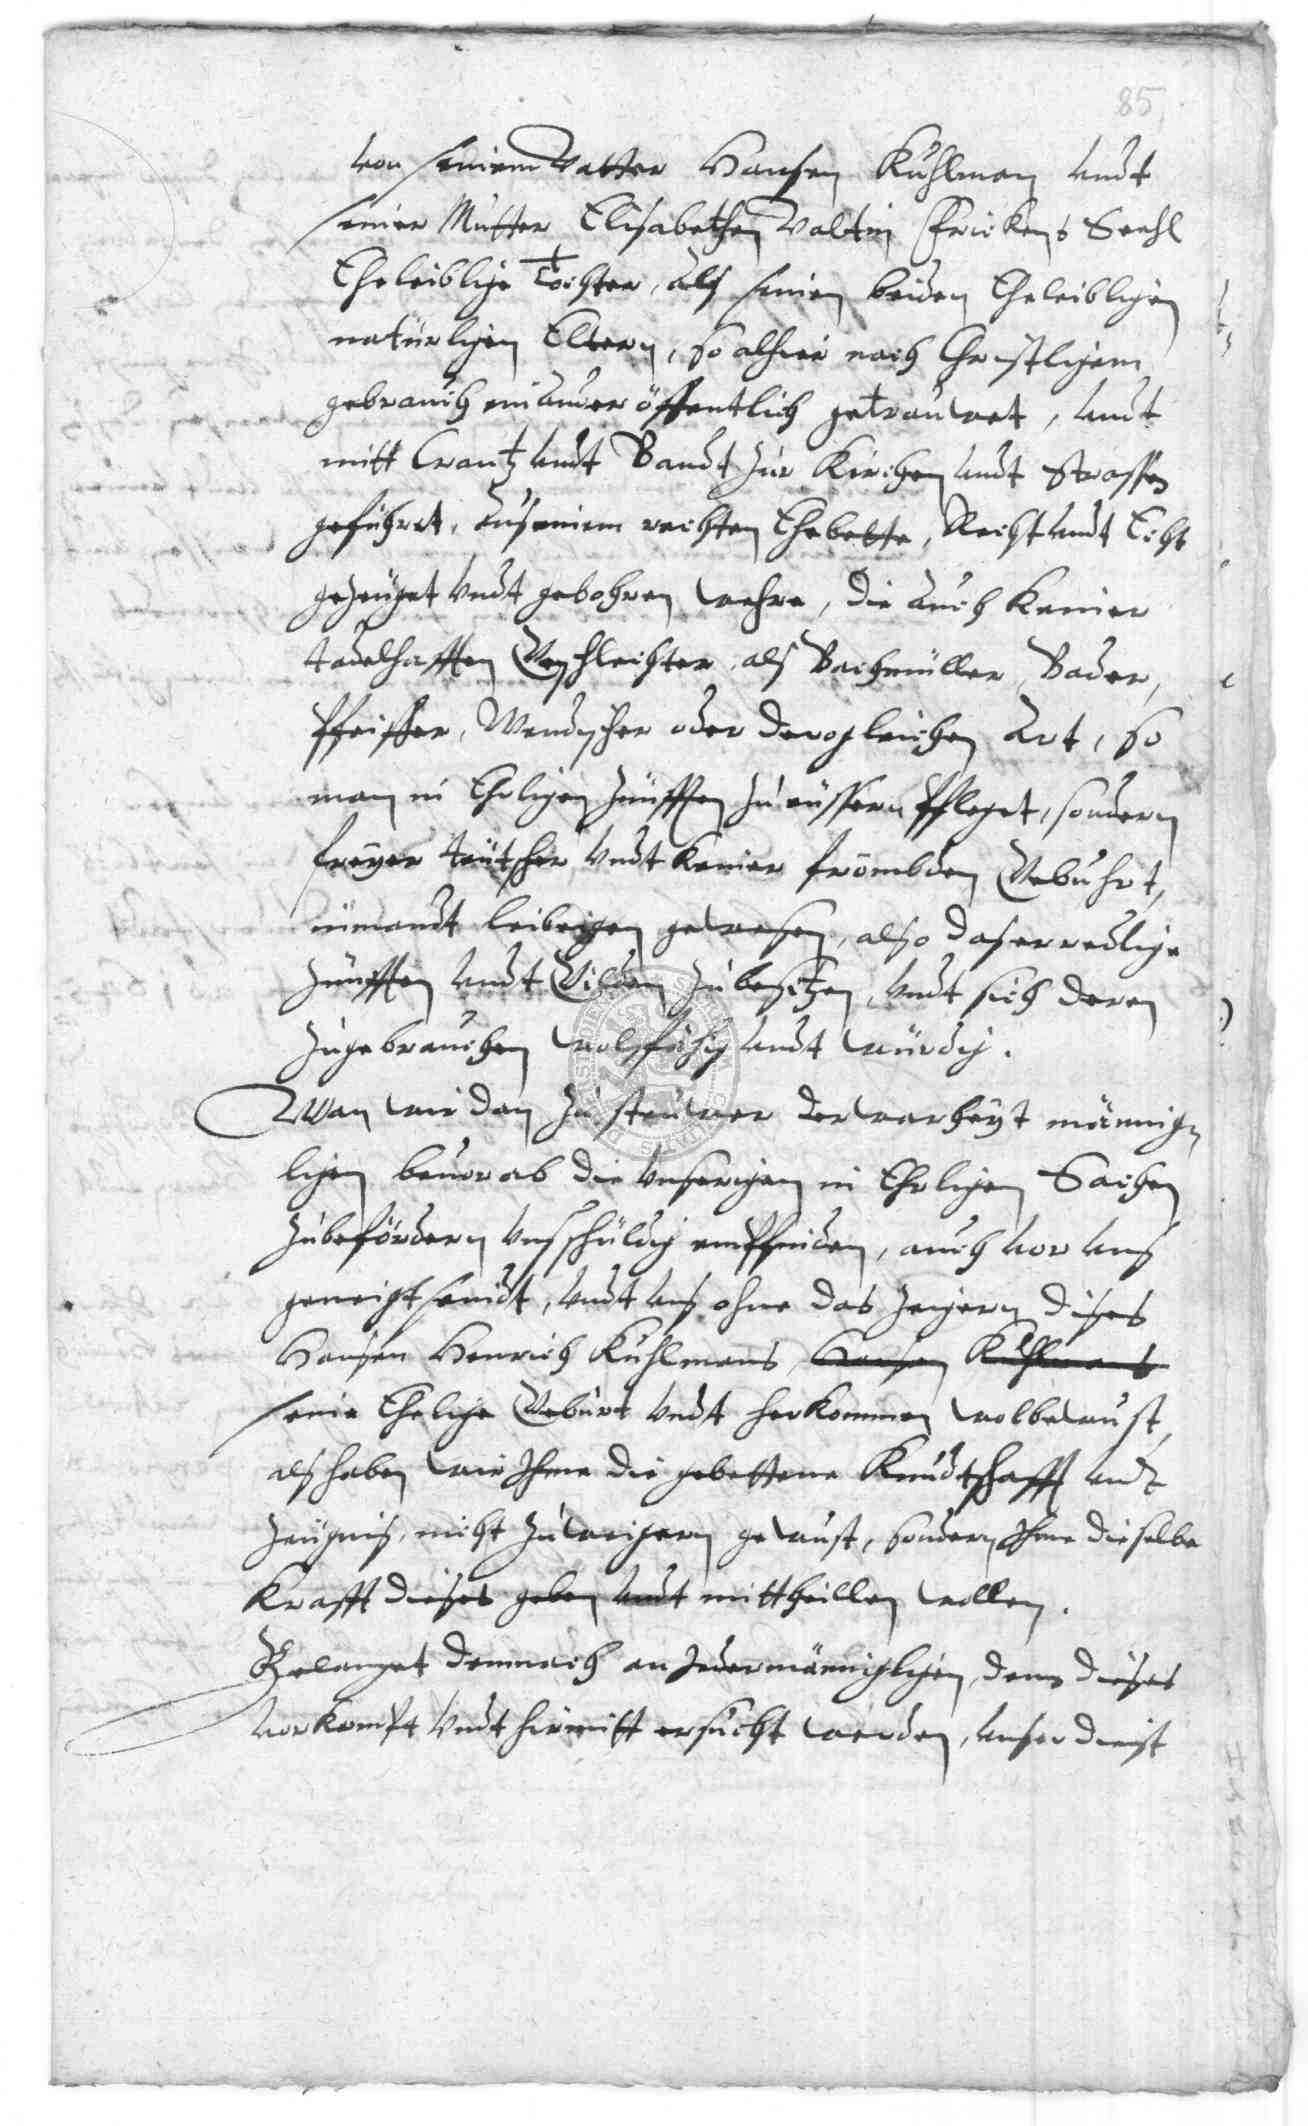 85
von seinem Vatter Hansen Kuhlman undt
seiner Mutter Elisabethen Valtin Frickens Seehl
Eheleiblige Tochter, alß seinen beiden Eheleibligen
naturligen Eltern, so alhier nach Christligem
gebrauch einander öffentlich getrauwet, undt
mitt Crantz undt Bandt zur Kirchen undt Strassen
geführet, auß einem rechten Ehebette, Recht undt Echt
gezeuget undt gebohren wehre, die auch keiner
tadelhafften Geschlechter, als Bachmüller, Bader,
Pfeiffer, Wendischer oder dergleichen Art, so
man in Ehrligen Zünfften zu eussern pfleget, sondern
freyer teütscher undt keiner frömbden Gebuhrt,
niemandt leibeigen gewesen, also das er redlige
Zünfften undt Gilden zubesitzen, undt sich deren
zugebrauchen wolfähig undt würdig.
Wan wir dan zu steuwer der warheyt männig-
ligen bevorab die unserigen in Ehrligen Sachen
zubefördern unß schuldig empfinden, auch vor unß
geneigt seindt, undt unß ohne das Zeigern dises
Hansen Henrich Kuhlmans, Hansen Kuhlmans
seine Ehelige Geburt undt herkommen wolbewust,
alß haben wir Ihme die gebettene Kundtschafft undt
Zeügniß, nicht zuweigern gewust, sondern Ihme dieselbe
Krafft dieses geben undt mittheillen wollen.
Gelanget demnach an Jedermännigligen, denen dieses
vorkompt undt hiemitt ersucht werden, unser dienst